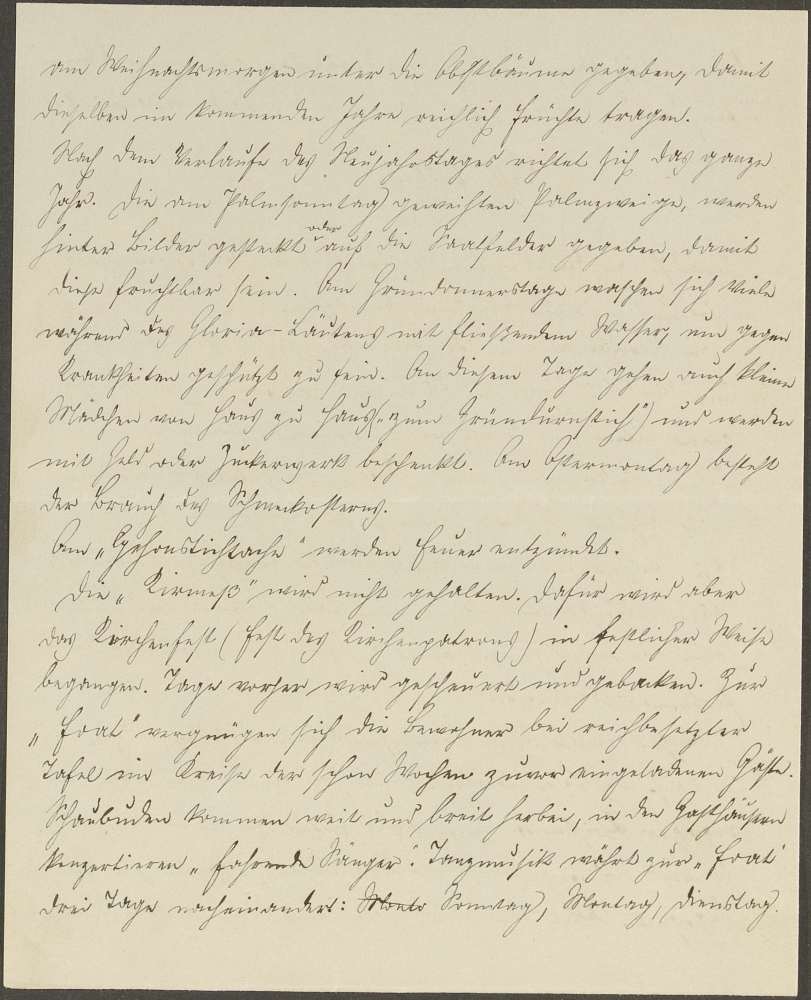 am Weihnachtsmorgen unter die Obstbäume gegeben, damit
dieselben im kommenden Jahre reichlich Früchte tragen.
Nach dem Verlaufe des Neujahrstages richtet sich das ganze
Jahr. Die am Palmsonntag geweihten Palmzweige, werden
hinter Bilder gesteckt oder auf die Saatfelder gegeben, damit
diese fruchtbar sein. Am Gründonnerstage waschen sich Viele
während des Gloria-Läutens mit fließendem Wasser, um gegen
Krankheiten geschützt zu sein. An diesem Tage gehen auch kleine
Mädchen von Haus zu Haus („zum Gründurnstich") und werden
mit Geld oder Zuckerwerk beschenkt. Am Ostermontag besteht
der Brauch des Schmeckosterns.
Am werden Feuer entzündet.
Die „Kirmeß" wird nicht gehalten. Dafür wird aber
das Kirchenfest (Fest des Kirchenpatrons) in festlicher Weise
begangen. Tage vorher wird gescheuert und gebacken. Zur
„Foat" vergnügen sich die Bewohner bei reichbesetzter
Tafel im Kreise der schon Wochen zuvor eingeladenen Gäste.
Schaubuden kommen weit und breit herbei, in den Gasthäusern
konzertieren „fahrende Sänger". Tanzmusik währt zur „Foat"
drei Tage nacheinander: Sonntag, Montag, Dienstag.